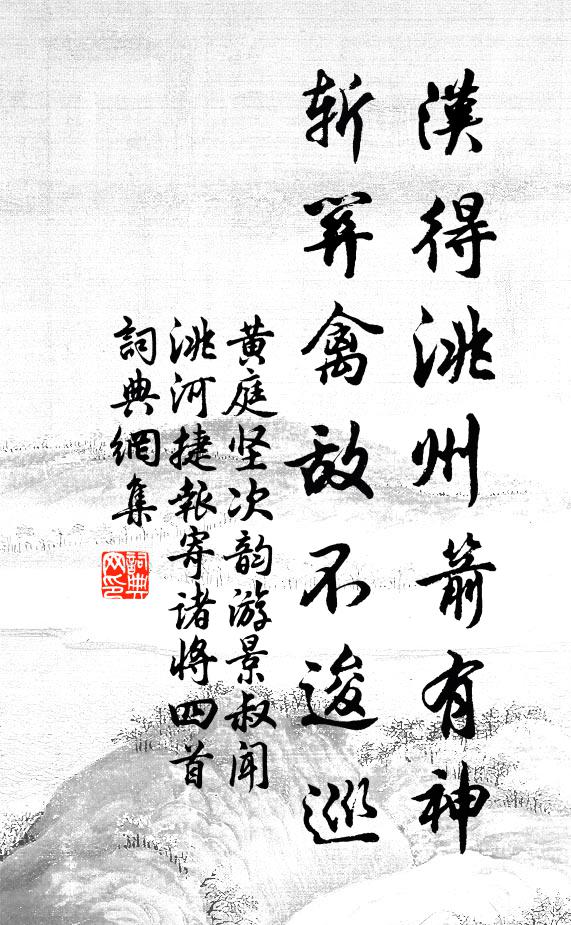 漢得洮州箭有神
斬關禽敵不逡巡
黄庭坚次韵游景叔闻
洮河捷報寄诸將四首
詞典網集
詞典
网印